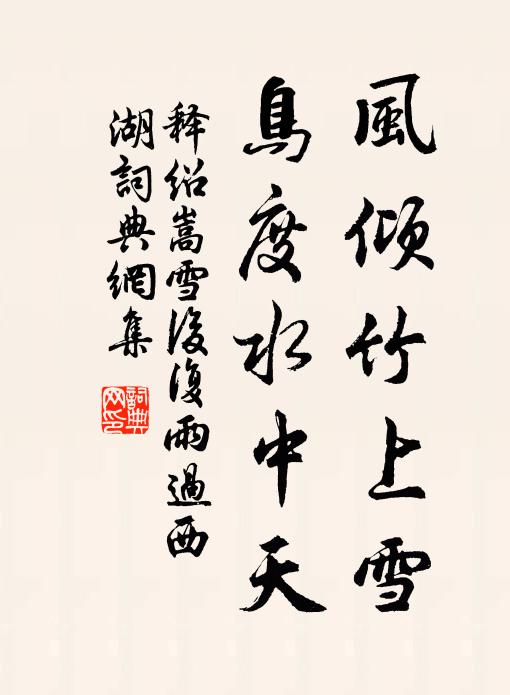 風傾竹上雪
鳥度水中天
释绍嵩雪後復雨過西
湖詞典網集
詞典网印